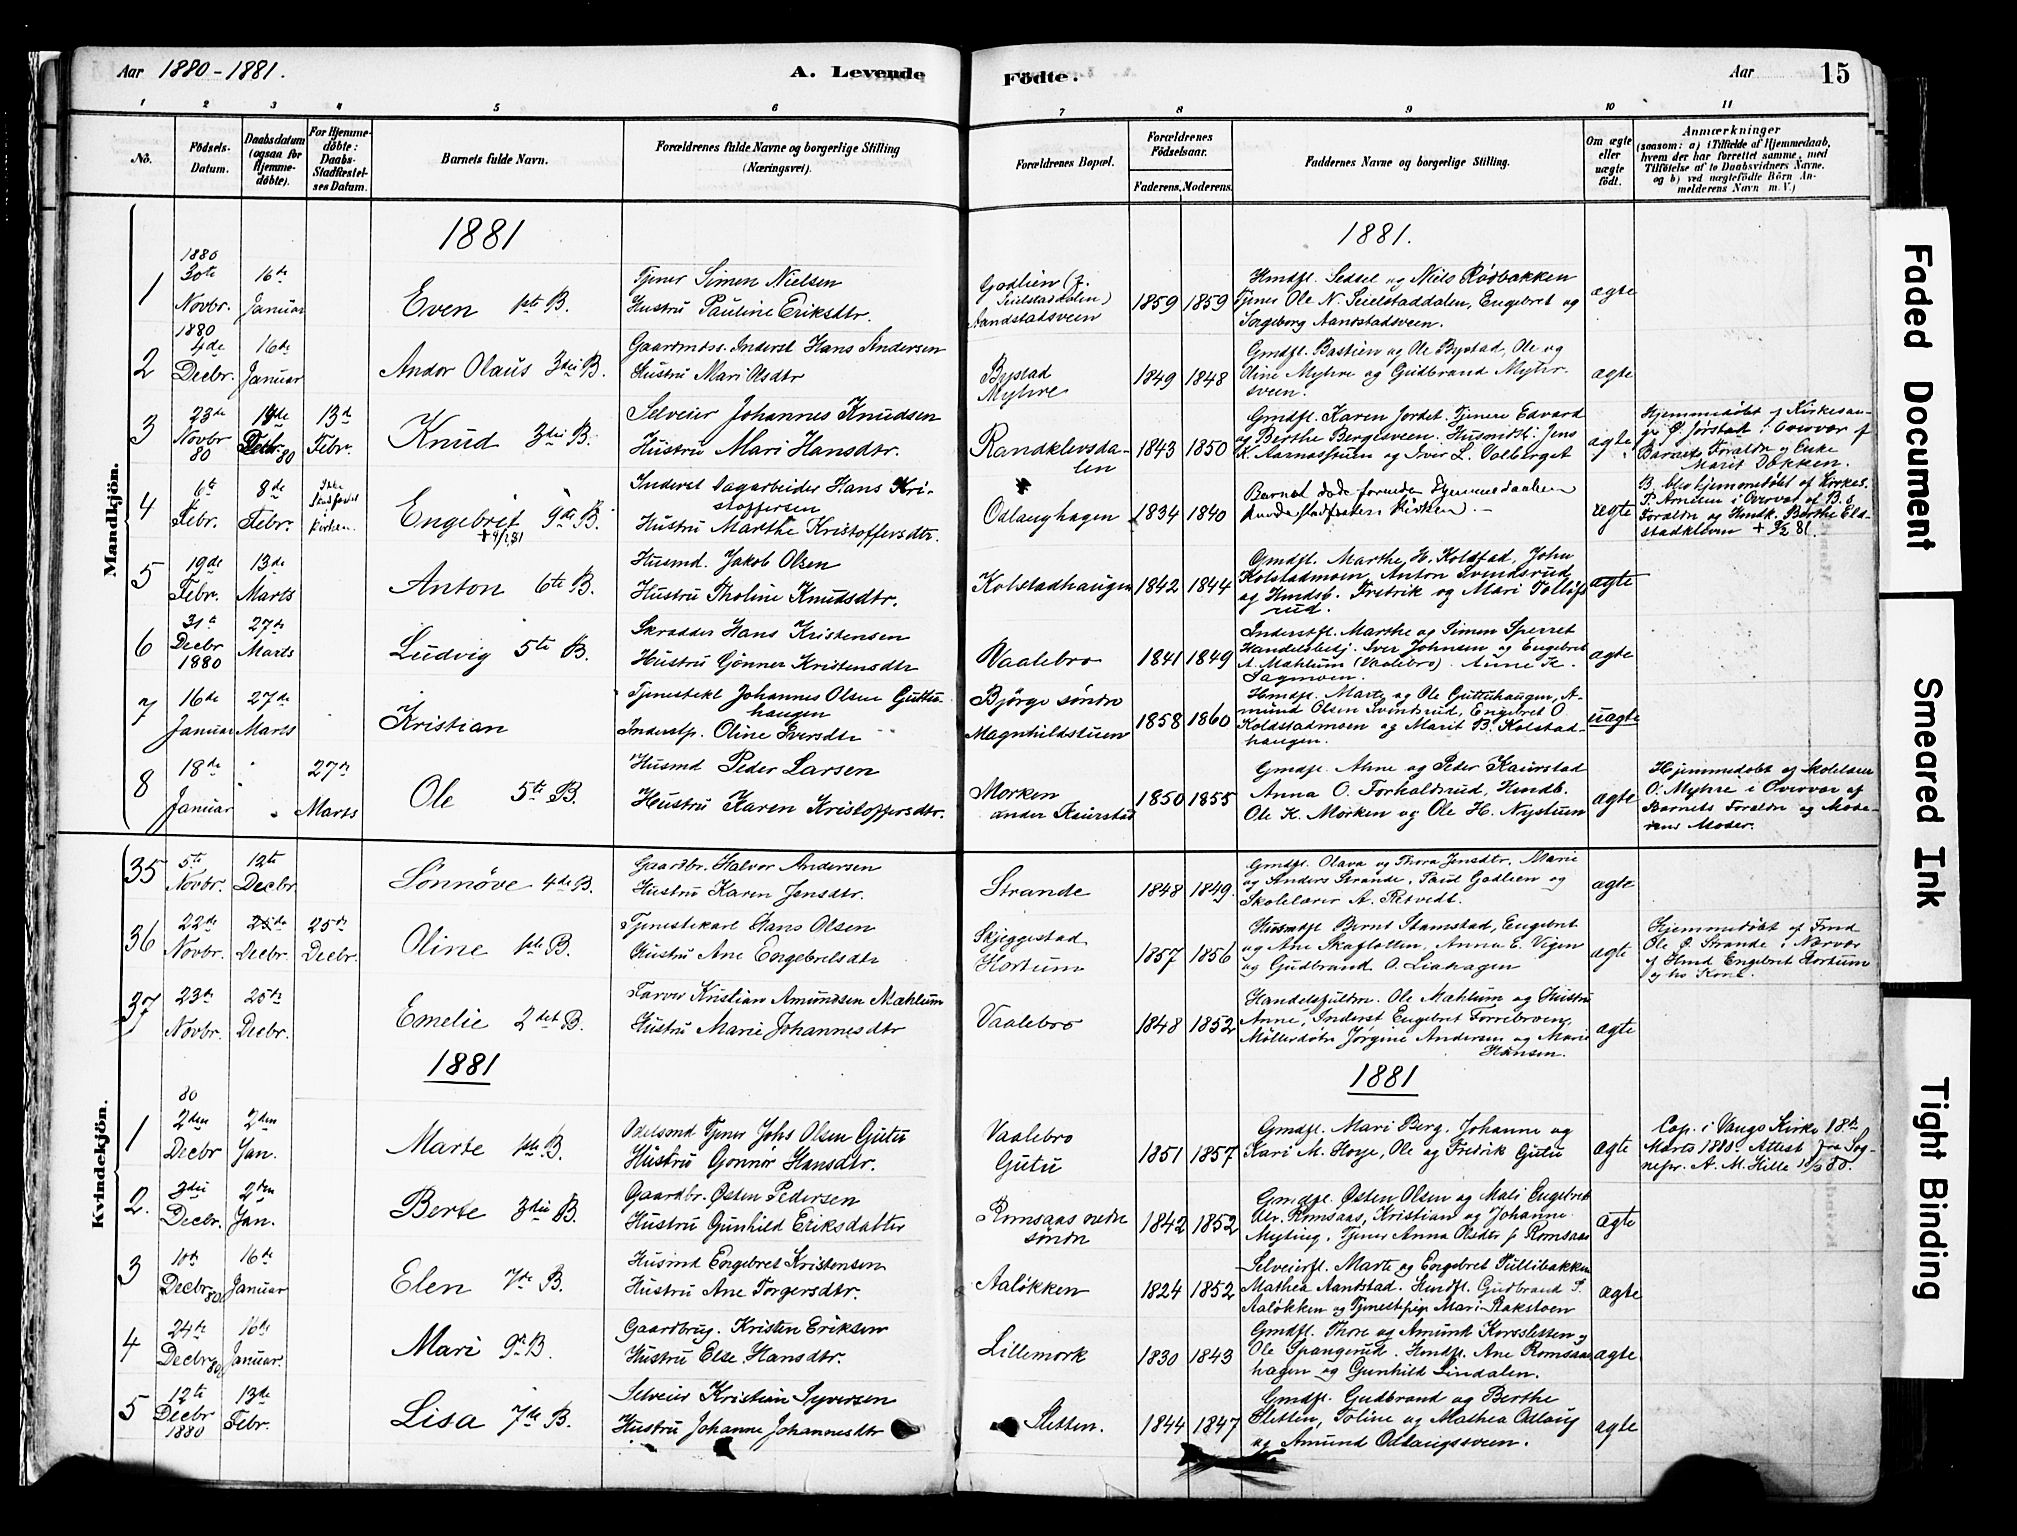 Aar 1880-1881.
A. Levende
Födte.
Aar
15
1 2 3 4 5 6 7 8 9 10 11
No.
Födsels-
Datum.
Daabsdatum
(ogsaa for
Hjemme-
döbte).
For Hjemme-
döbte:
Daabs-
Stadfæstel-
ses Datum.
Barnets fulde Navn.
Forældrenes fulde Navne og borgerlige Stilling
(Næringsvei).
Forældrenes Bopæl.
Forældrenes
Födselsaar.
Faderens. Moderens.
Faddernes Navne og borgerlige Stilling.
Om ægte
eller
uægte
födt.
Anmærkninger
(saasom: a) i Tilfælde af Hjemmedaab,
hvem der har forrettet samme, med
Tilföielse af to Daabsvidners Navne,
og b) ved uægtefödte Börn An-
melderens Navn m. V.)
Mandkjön.
1881
1881.
1
1880
30te
Novbr.
16de
Januar
Even 1ste B.
Tjener Simen Nielsen
Hustru Pauline Eriksdtr.
Godlien (f.
Seielstaddalen)
Aandstadsveen
1859 1859
Hmdfl. Sedsel og Niels Rødbakken
Tjener Ole N. Seielstaddalen, Engebret og
Ingeborg Aandstadsveen.
ægte
2
1880
4de
Decbr.
16de
Januar
Andor Olaus 3die B.
Gaardmds. Inderst Hans Andersen
Hustru Mari Olsdtr
Bystad
Myhre
1849 1848
Gmdfl. Bastien og Ole Bystad, Ole og
Oline Myhre og Gudbrand Myhr-
sveen.
ægte
3
23de
Novbr
80
Decbr. 80
13de
Febr.
Knud 3die B.
Selveier Johannes Knudsen
Hustru Mari Hansdtr.
Randklevsda-
len
1843 1850
Gmdfl. Karen Jordet. Tjenere Edvard
og Berthe Bergesveen. Jens
K. Aarnesstuen og Iver L. Volberget
ægte
Hjemmedøbt af Kirkesan-
ger Ø. Jørstad i Overvær af
Barnets Forældre og Enke
Marit Dokken.
4
6te
Febr.
8de
Febr.
Ikke
stadfæstet
i
Kirken
Engebret 9de B.
Inderst Dagarbeider Hans Kri-
stoffersen
Hustru Marthe Kristoffersdtr.
Odlaughagen
1834 1840
Barnet døde forinden Hjemmedaaben
kunde stadfæstes i Kirken. -
ægte
B. blev hjemmedøbt af Kirkes.
i Overvær af B.s
Forældre og Hmdk. Berthe Eld-
stadkleven + 9/2 81.
5
19de
Febr.
13de
Marts
Anton 6te B.
Husmd. Jakob Olsen
Hustru Tholine Knudsdtr.
Kolstadhaugen
1842 1844
Gmdfl. Marthe H. Kolstad, John
Kolstadmoen, Anton Svendsrud
og Hmdsb. Fredrik og Mari Tollofs
rud.
ægte
6
31te
Decbr
1880
27de
Marts
Ludvig 5te B.
Skrædder Hans Kristensen
Hustru Gønner Kristensdtr
Vaalebro
1841 1849
Inderstfl. Marthe og Simen Sperret
Handelsbetj. Iver Johnsen og Engebret
A. Mæhlum (Vaalebro). Anne K.
Sagmoen.
ægte
7
16de
Januar
27de
Marts
Kristian
Tjenestekl Johannes Olsen Guttu-
haugen
Inderstp. Oline Iversdtr
Bjørge søndre
Magnhildstuen
1858 1860
Hmdfl. Marte og Ole Guttuhaugen, A-
mund Olsen Svendsrud, Engebret O
Kolstadmoen og Marit B. Kolstad-
haugen.
uægte
8
18de
Januar
27de
Marts
Ole 5te B.
Husmd Peder Larsen
Hustru Karen Kristoffersdtr.
Morken
under Kaurstad
1850 1855
Gmdfl. Anne og Peder Kaurstad
Anna O. Forhaldsrud, Hmdb.
Ole K. Morken og Ole H. Nystuen
ægte
Hjemmedøbt af Skolelærer
O. Myhre i Overvær af
Barnets Forældre og Mode-
rens Moder.
Kvindekjön.
35
5te
Novbr.
12te
Decbr.
Sønnøve 4de B.
Gaardbr. Halvor Andersen
Hustru Karen Jensdtr.
Strande
1848 1849.
Gmdfl. Olava og Thora Jensdtr, Marie
og Anders Strande, Paul Godlien og
Skolelærer A. Tretvedt.
ægte
36
22de
Novbr.
25de
Decbr.
25de
Decbr.
Oline 1ste B.
Tjenestekarl Hans Olsen
Hustru Ane Engebretsdtr
Skjeggestad
Hortum
1857 1856
Husmdfl Bernt Stamstad, Engebret
og Ane Skaflotten, Anna E. Vigen
og Gudbrand O. Liahagen
ægte
Hjemmedøbt af Fmd
Ole P. Strande i Nærvær
af Hmd Engebret Hortum
og hs Kone.
37
23de
Novbr.
25de
Decbr.
Emelie 2det B.
Farver Kristian Amundsen Mæhlum
Hustru Marie Johannesdtr
Vaalebro
1848 1852
Handelsfuldm. Ole Mæhlum og Hustru
Anne, Inderst Engebret Forrebroen,
Møllerdøtre Jørgine Andersen og Marie
Hansen.
ægte
1881
1881
1
80
2den
Decbr
2den
Jan.
Marte 1ste B.
Odelsmd Tjener Johs Olsen Gutu
Hustru Gonnor Hansdtr.
Vaalebro
Gutu
1851 1857
Gmdfl. Mari Berg, Johanne og
Kari M. Hoye, Ole og Fredrik Gutu
ægte
Cop. i Vangs Kirke 18de
Marts 1880. Attest fra Sog-
nepr. A. M. Hille
2.
3die
Decbr.
2den
Jan.
Berte 3die B.
Gaardbr. Østen Pedersen
Hustru Gunhild Eriksdatter
Romsaas nedre
søndre
1842 1852
Gmdfl. Østen Olsen og Mali Engebret
dtr. Romsaas, Kristian og Johanne
Myting, Tjener Anna Olsdtr p Romsaas
ægte
3
10de
Decbr. 80
16de
Januar
Elen 7de B.
Husmd Engebret Kristensen
Hustru Ane Torgersdtr.
Aaløkken
1824 1852
Selveierfl. Marte og Engebret Pullibakken
Mathea Aandstad. Hmdfl. Gudbrand P.
Aaløkken og Tjenestpige Mari Rakstoen
ægte
4
24de
Decbr 80
16de
Januar.
Mari 9de B.
Gaardbrug. Kristen Eriksen
Hustru Else Hansdtr.
Lillemork
1830 1843
Gmdfl. Thore og Amund Korssletten og
Ole Spangrud. Hmdfl. Ane Romsaas
hagen og Gunhild Lindalen.
ægte
5
12te
Decbr
1880
13de
Febr.
Lisa 7de B.
Selveier Kristian Syversen
Hustru Johanne Johannesdtr
Sletten.
1844 1847
Gmdfl. Gudbrand og Berthe
Sletten, Toline og Mathea Odlaug
og Amund Odlaugssveen.
ægte
Faded Document
Smeared Ink
Tight Binding